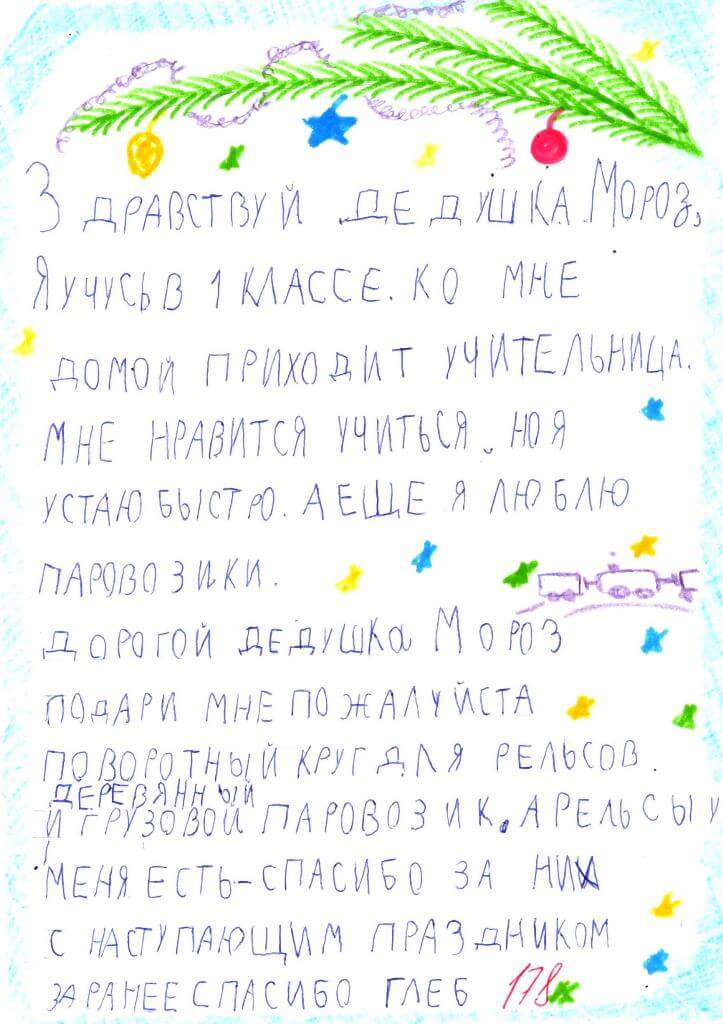 ЗДРАВСТВУЙ ДЕДУШКА МОРОЗ,
Я УЧУСЬ В 1 КЛАССЕ. КО МНЕ
ДОМОЙ ПРИХОДИТ УЧИТЕЛЬНИЦА.
МНЕ НРАВИТСЯ УЧИТЬСЯ, НО Я
УСТАЮ БЫСТРО. А ЕЩЕ Я ЛЮБЛЮ
ПАРОВОЗИКИ.
ДОРОГОЙ ДЕДУШКА МОРОЗ
ПОДАРИ МНЕ ПОЖАЛУЙСТА
ПОВОРОТНЫЙ КРУГ ДЛЯ РЕЛЬСОВ.
ДЕРЕВЯННЫЙ
И ГРУЗОВОЙ ПАРОВОЗИК, А РЕЛЬСЫ У
МЕНЯ ЕСТЬ – СПАСИБО ЗА НИХ
С НАСТУПАЮЩИМ ПРАЗДНИКОМ
ЗАРАНЕЕ СПАСИБО ГЛЕБ 178